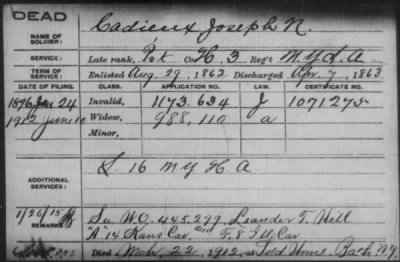 DEAD
NAME OF SOLDIER: Cadieux Joseph N.
SERVICE: Late rank, Pvt Co. H, 3 Reg't N.Y. L. A.
TERM OF SERVICE: Enlisted Aug. 29, 1862 Discharged Apr. 7, 1863
DATE OF FILING. CLASS. APPLICATION NO. LAW. CERTIFICATE NO.
1896 Jan 24 Invalid, 1173.634 J 1071275
1912 June 10 Widow, 988,110 a
Minor,
ADDITIONAL SERVICES: S. 16 N.Y. H A
1/26/15
REMARKS: See W.O. 445.299. Leander T. Hill
"A" 14 Kans Cav. and F. 8 Ill Cav
Died Mch. 22, 1912, at Sold Home. Bath. N.Y.